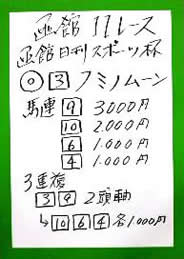 函館 11レース
函館日刊スポーツ杯
◎ 3 フミノムーン
馬連 9 3000円
10 2.000円
6 1.000円
4 1.000円
3連複
3 9 2頭軸
↳ 10 6 4 各1000円